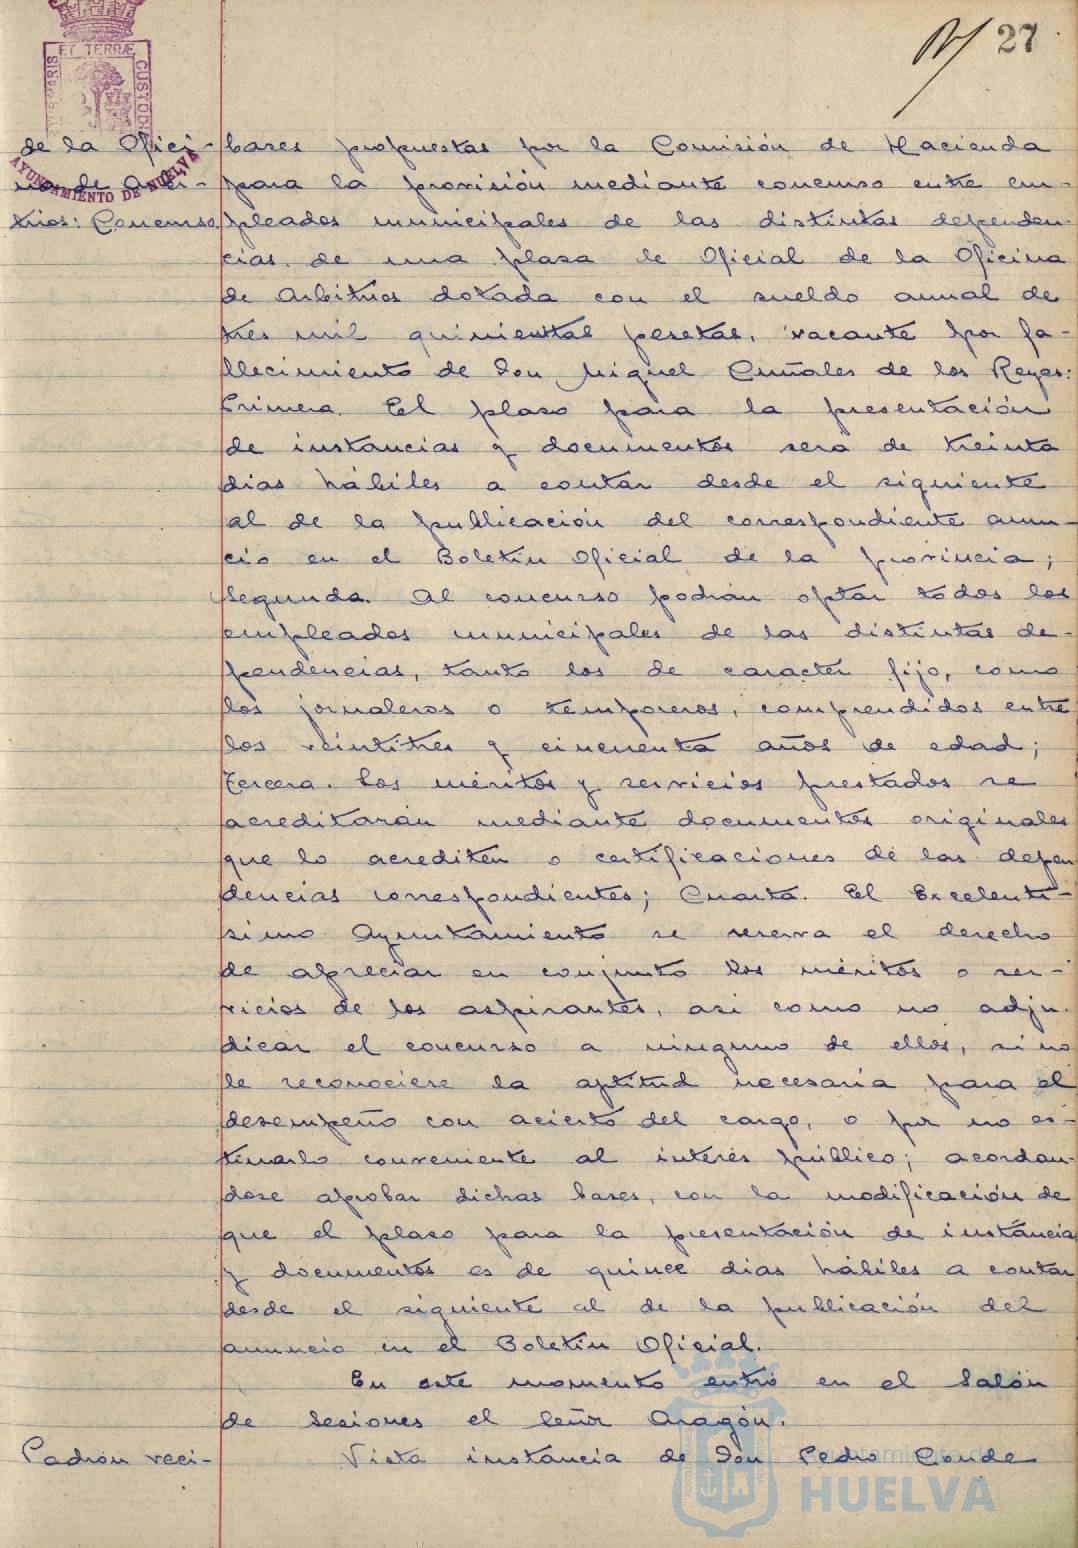 27
ET TERRÆ
CUSTODIA
AYUNTAMIENTO DE HUELVA
de la Ofici-
na de Arbi-
trios: Concurso
bases propuestas por la Comisión de Hacienda
para la provisión mediante concurso entre em-
pleados municipales de las distintas dependen-
cias de una plasa de Oficial de la Oficina
de Arbitrios dotada con el sueldo anual de
tres mil quinientas pesetas, vacante por fa-
llecimiento de Don Miguel Cuñales de los Reyes:
Primera. El plaso para la presentación
de instancias y documentos sera de treinta
dias hábiles a contar desde el siguiente
al de la publicación del correspondiente anun-
cio en el Boletin Oficial de la provincia;
Segunda. Al concurso podrán optar todos los
empleados municipales de las distintas de-
pendencias, tanto los de caracter fijo, como
los jornaleros o temporeros, comprendidos entre
los veintitres y cincuenta años de edad;
Tercera. Los méritos y servicios prestados se
acreditarán mediante documentos originales
que lo acrediten o certificaciones de las depen
dencias correspondientes; Cuarta. El Excelentí-
simo Ayuntamiento se reserva el derecho
de apreciar en conjunto los méritos o ser-
vicios de los aspirantes, asi como no adju-
dicar el concurso a ninguno de ellos, si no
le reconociese la aptitud necesaria para el
desempeño con acierto del cargo, o por no es-
timarlo conveniente al interés público; acordan-
dose aprobar dichas bases, con la modificación de
que el plaso para la presentación de instancia
y documentos es de quince dias hábiles a contar
desde el siguiente al de la publicación del
anuncio en el Boletin Oficial.
En este momento entró en el Salón
de Sesiones el Señor Aragón.
Padrón veci-
Vista instancia de Don Pedro Conde
Ayuntamiento de
HUELVA